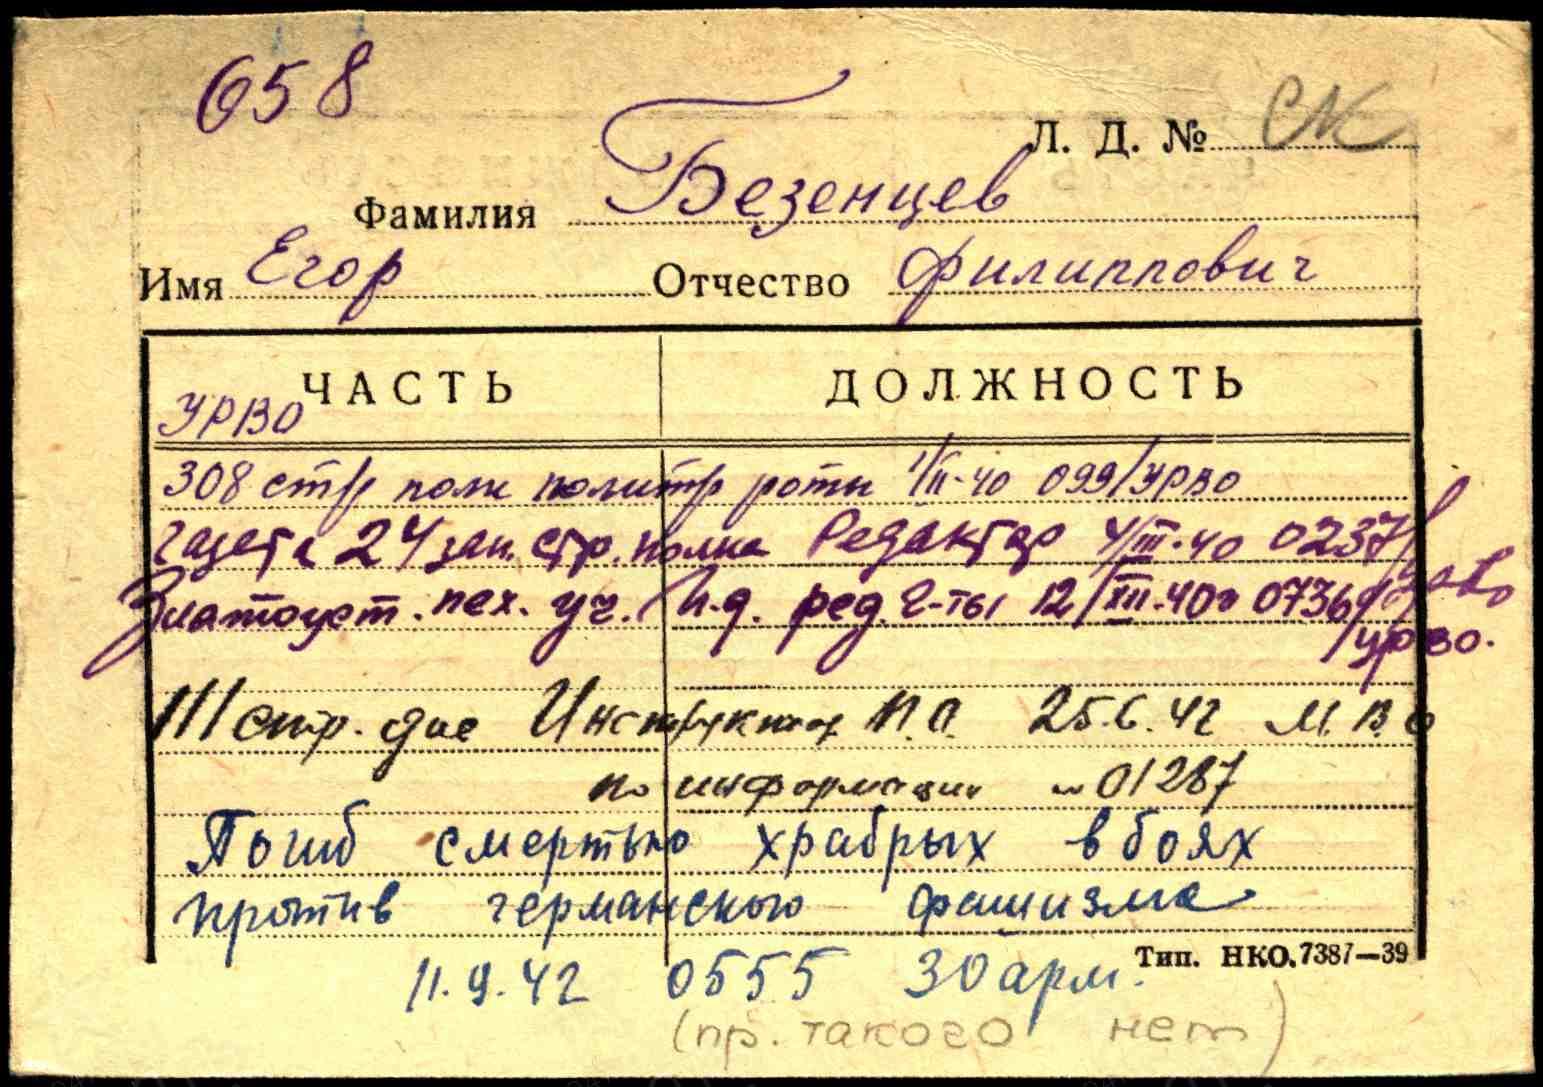 658
Л. Д. № СК
Фамилия Безенцев
Имя Егор Отчество Филиппович
ЧАСТЬ ДОЛЖНОСТЬ
УРВО
308 стр полк политр роты 1/II-40 099/УРВО
газета 24 зап. стр. полка Редактор 4/III-40 0237/
Златоуст. пех. уч. И.д. ред. г-ты 12/XII-40г 0736
/урво.
111 стр. див Инструктор П.О. 25.6.42 М.В.О
по информации 01287
Погиб смертью храбрых в боях
против германского фашизма
Тип. НКО. 7387—39
11.9.42 0555 30 арм.
(пр. такого нет)